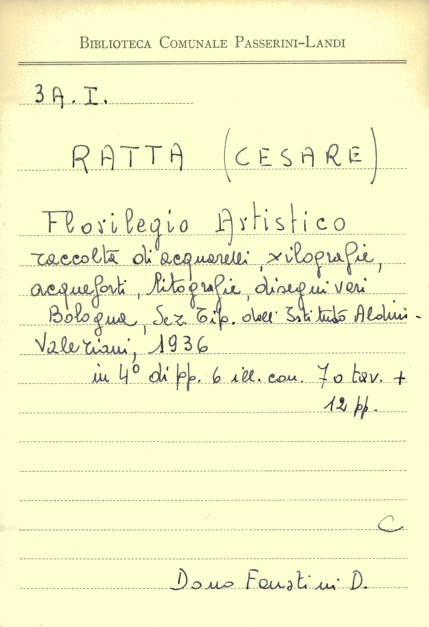 BIBLIOTECA COMUNALE PASSERINI-LANDI
3A. I.
RATTA (CESARE)
Florilegio Artistico
raccolta di acquarelli, xilografie,
acqueforti, litografie, disegni vari
Bologna, Sez. Tip. dell'Istituto Aldini-
Valeriani, 1936
in 4° di pp. 6 ill. con 70 tav. +
12 pp.
C
Dono Faustini D.